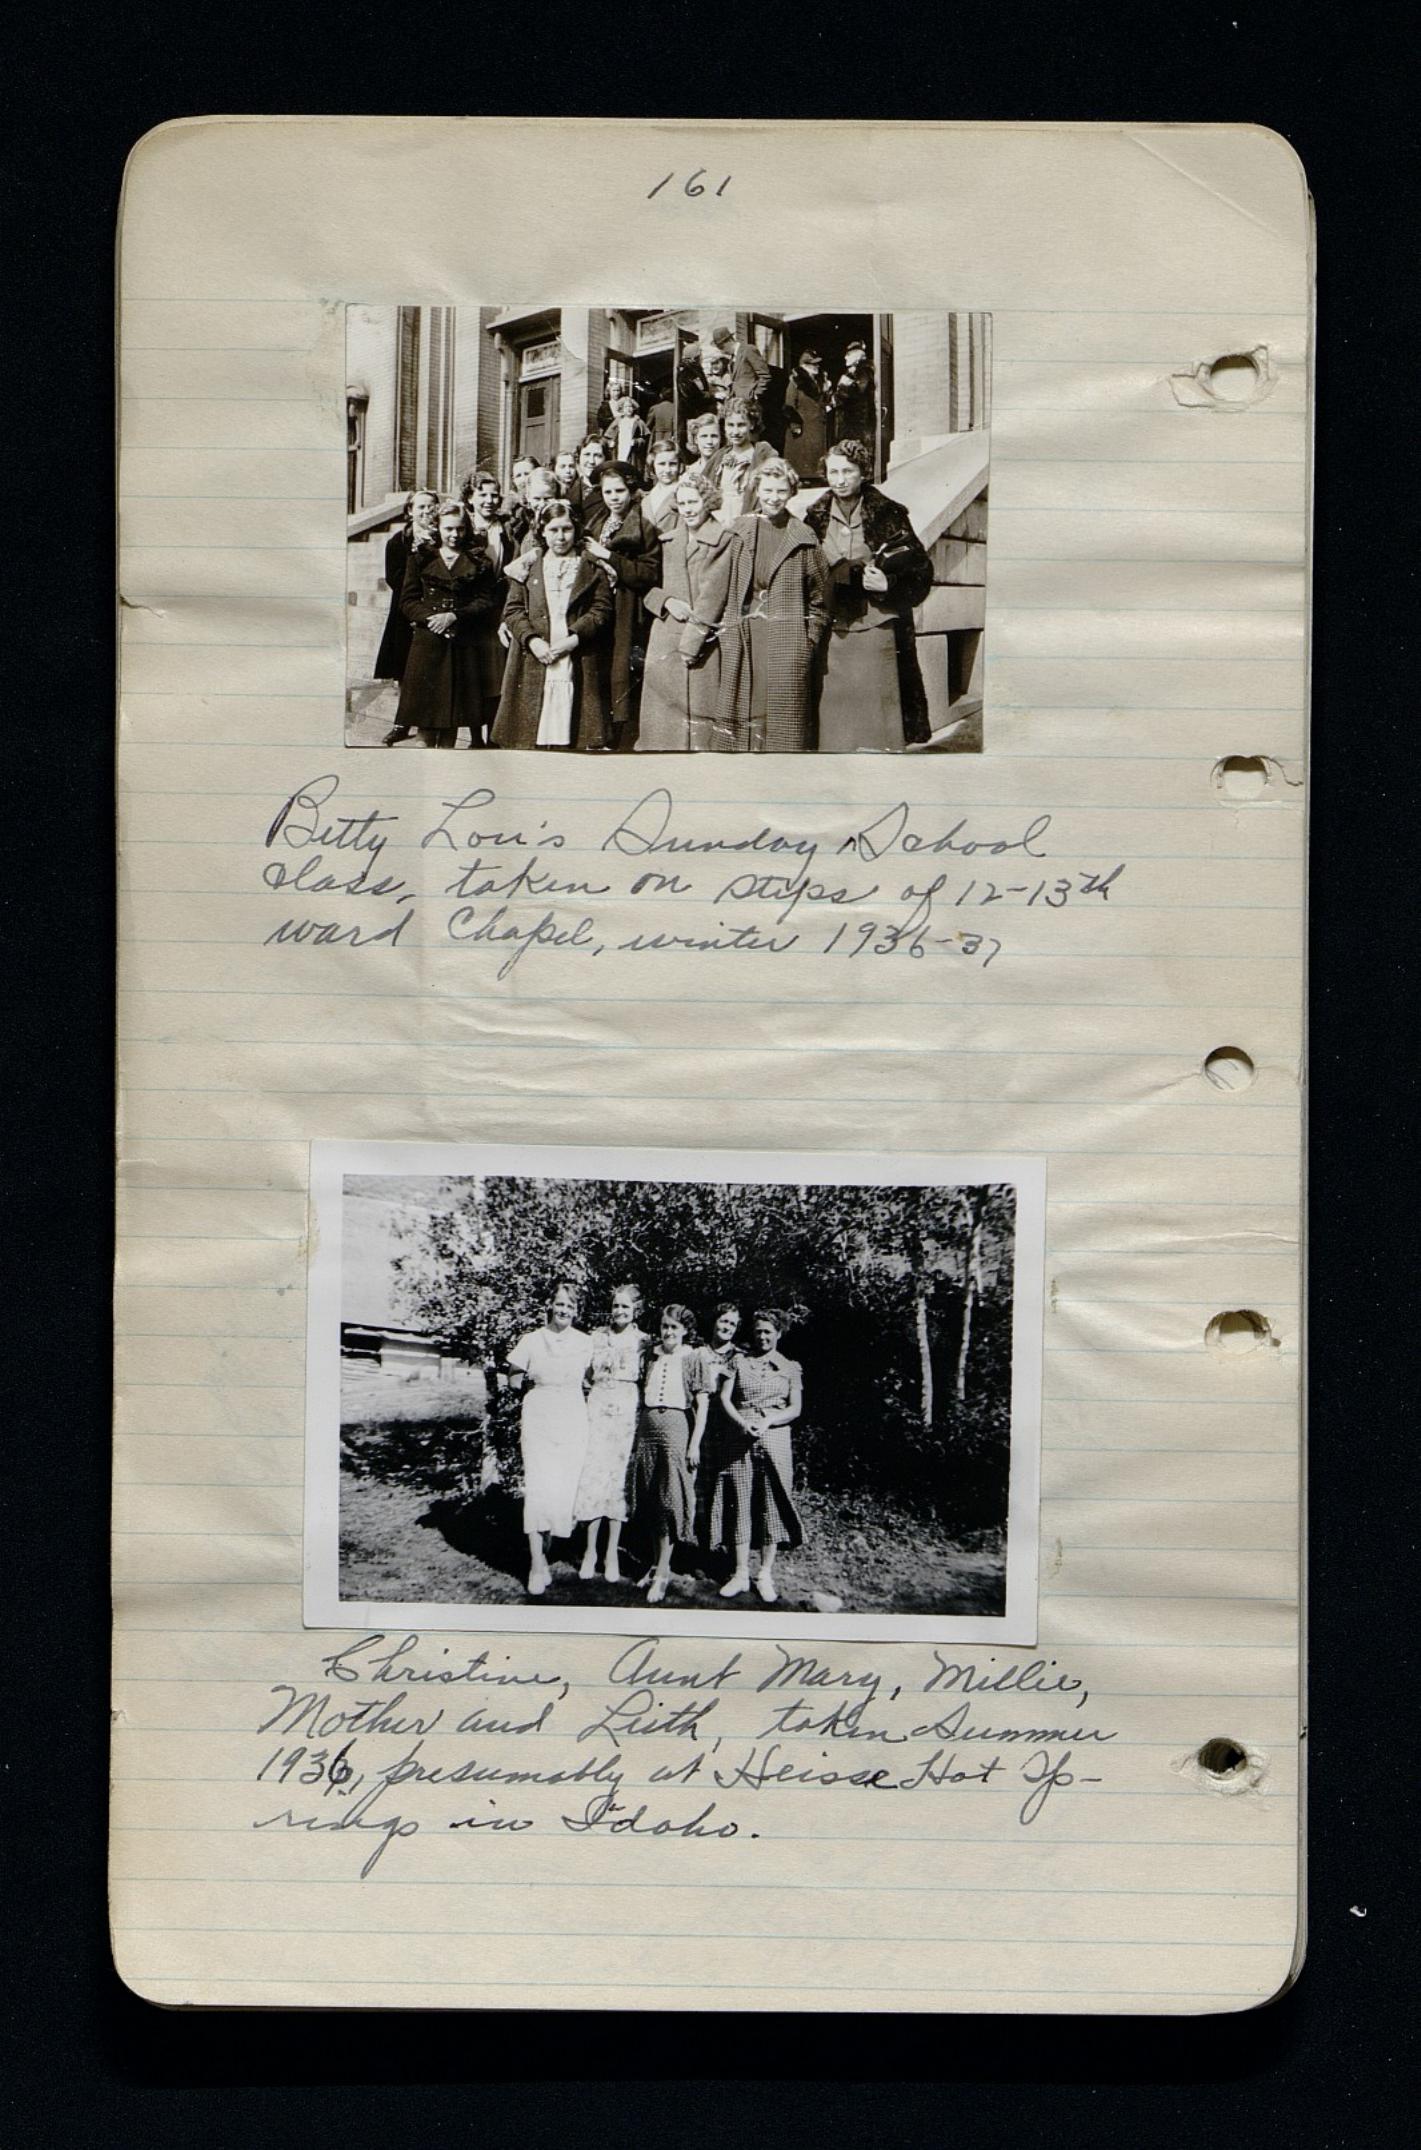 161
Betty Lou's Sunday School
class, taken on steps of 12-13th
ward Chapel, winter 1936-37
Christine, Aunt Mary, Millie,
Mother and Leith, taken Summer
1936, presumably at Heisse Hot Sp-
rings in Idaho.